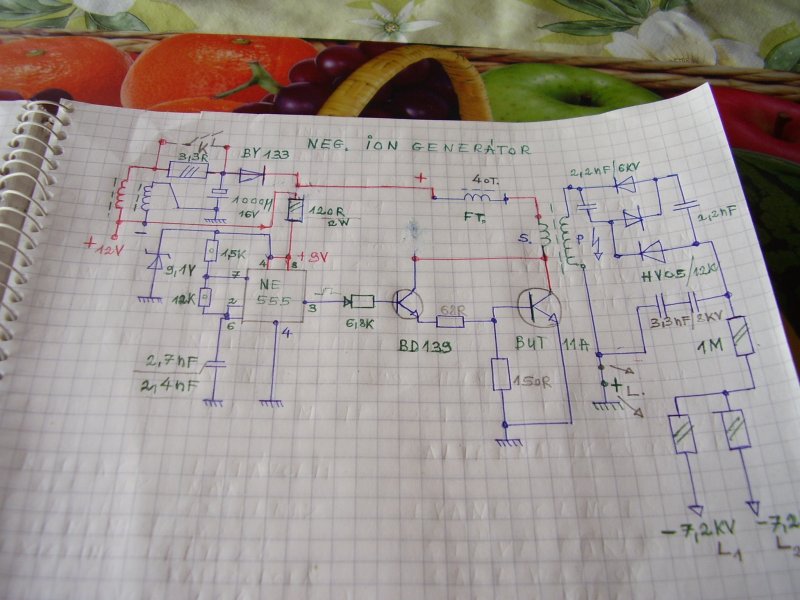 NEG. iON GENERÁTOR
K
3,3R
BY 133
+
40T.
2,2nF/6KV
1000µ
16V
120R
2W
FT.
2,2nF
S.
P
+12V
1,5K
+9V
9,1V
4
8
7
NE
555
HV05/12K
12K
2
3
6
6,8K
62R
3,3nF/2KV
BD139
BUT 11A
1M
4
2,7nF
2,4nF
150R
+
L.
-7,2KV
L1
-7,2
L2